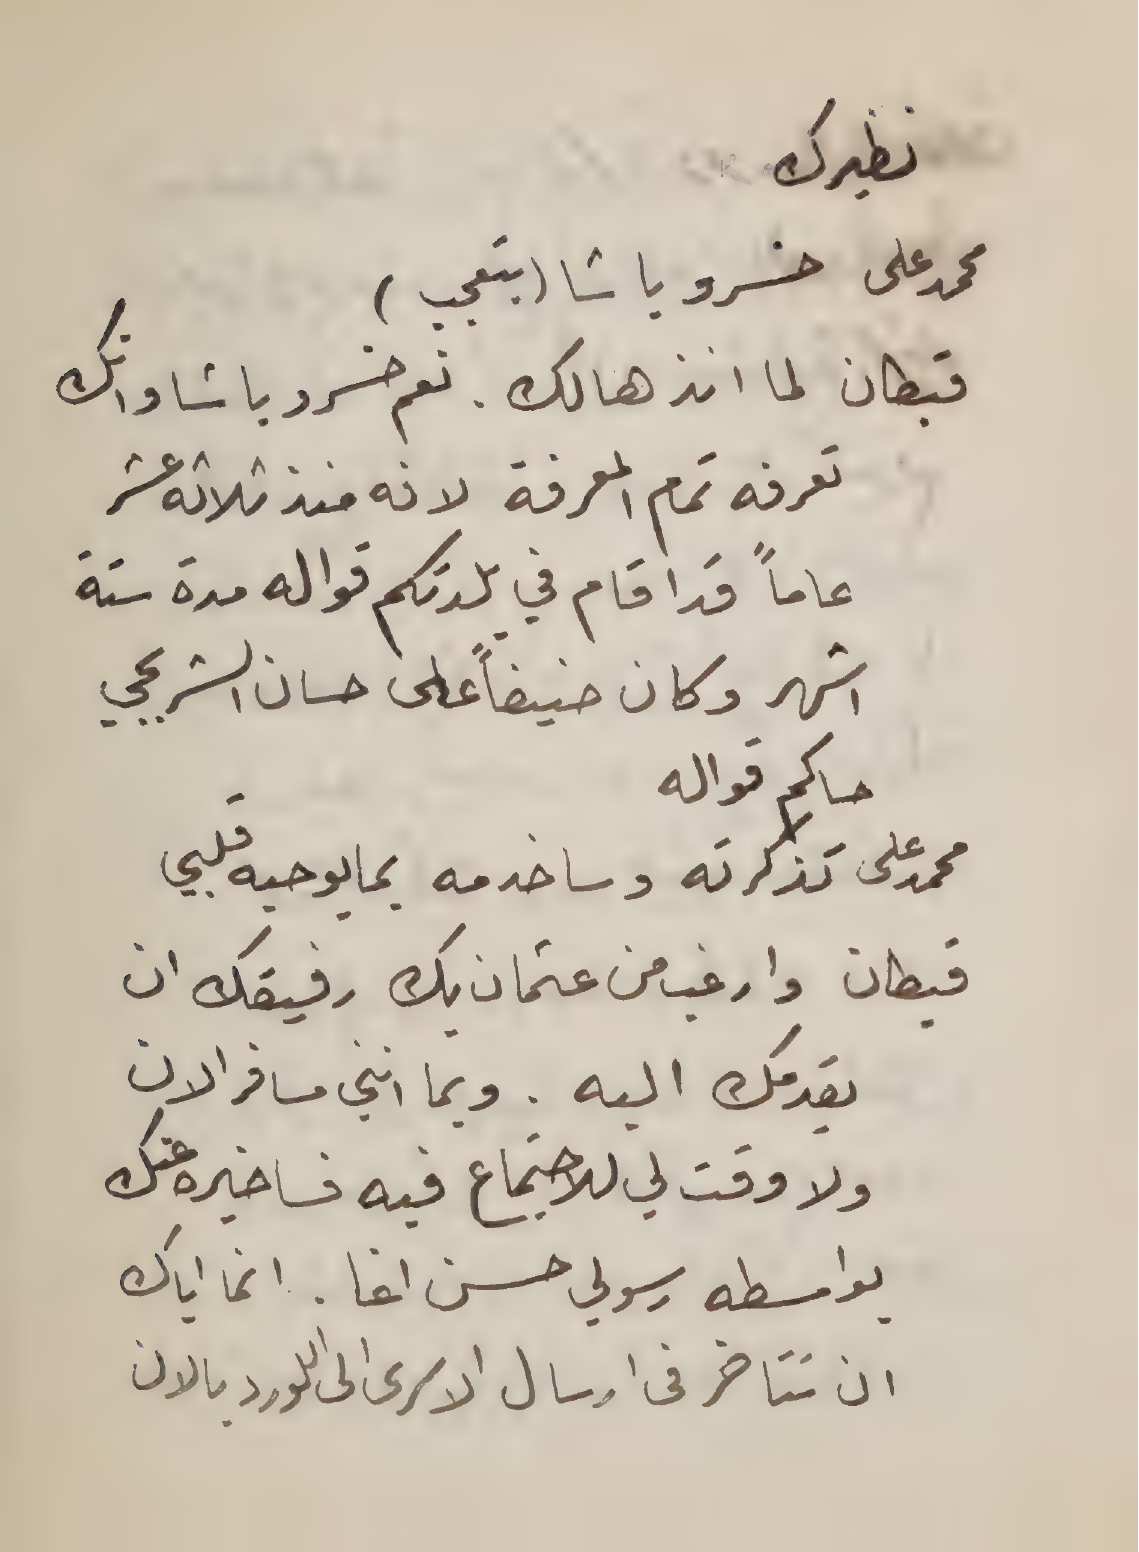 نظيرك
محمد على خسرو باشا (بتعجب)
قبطان لما انذهالك . نعم خسرو باشا وانك
تعرفه تمام المعرفة لانه منذ ثلاثه عشر
عاماً قد اقام في بلدتكم قواله مدة ستة
اشهر وكان ضيفاً على حسان الشربجي
حاكم قواله
محمد على تذكرته وساخدمه بما يوحيه قلبي
قبطان وارغب من عثمان بك رفيقك ان
يقدمك اليه . وبما انني مسافر الان
ولا وقت لي للاجتماع فيه فساخبره عنك
بواسطه رسولي حسن اغا . انما اياك
ان تتاخر فى ارسال الاسرى الى اللورد بالان